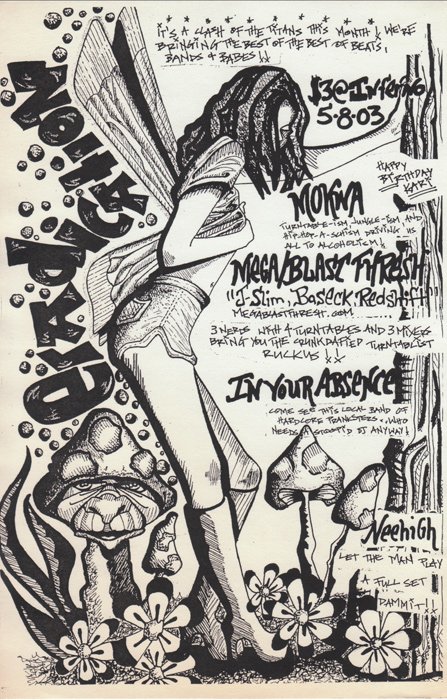 IT'S A CLASH OF THE TITANS THIS MONTH! WE'RE
BRINGING THE BEST OF THE BEST OF BEATS,
BANDS & BABES!!
$3@Inferno
5.8.03
HAPPY
BIRTHDAY
KARY
MOKNA
TURNTABLE-ISM, JUNGLE-ISM AND
HIPHOP-A-SCHISM DRIVING US
ALL TO ALCOHOLISM!
MEGA/BLAST THRESH
"J-Slim, Boseck, Redshift"
MEGABLASTTHRESH.COM
3 NERDS WITH 4 TURNTABLES AND 3 MIXERS
BRING YOU THE CRUNKDAFIED TURNTABLIST
RUCKUS!!
IN YOUR ABSENCE
COME SEE THIS LOCAL BAND OF
HARDCORE PRANKSTERS...WHO
NEEDS A STOOPID DJ ANYWAY!
Neehigh
LET THE MAN PLAY
A FULL SET
DAMMIT!!